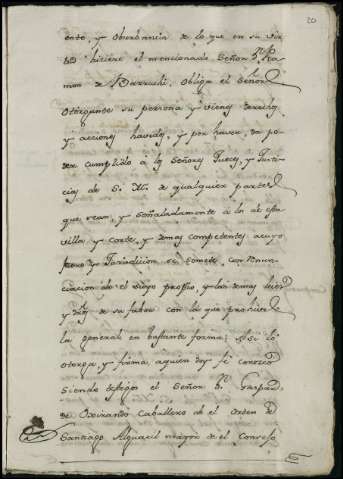 20
ente, y observancia de lo que en su vir
tud hiciere el mencionado Señor Dn. Ra
mon de obliga el Señor
Otorgante su persona y vienes derechos
y acciones havidos, y por haver, da po
der cumplido a los Señores Jueces, y Justi
cias de S. M. de qualquier partes
que sean, y señaladamente à los de esta
villa y corte, y demas competentes a cuyo
fuero y Jurisdiccion se somete con renun
ciacion de el suyo propio, y las demas leies
y de su fabor con la que prohive
la general en bastante forma: Asi lo
otorga y firma, a quien doy fe conozco
siendo testigos el Señor Dn. Gaspar
de Cavallero de el Orden de
Santiago Alguacil mayor de el Consejo